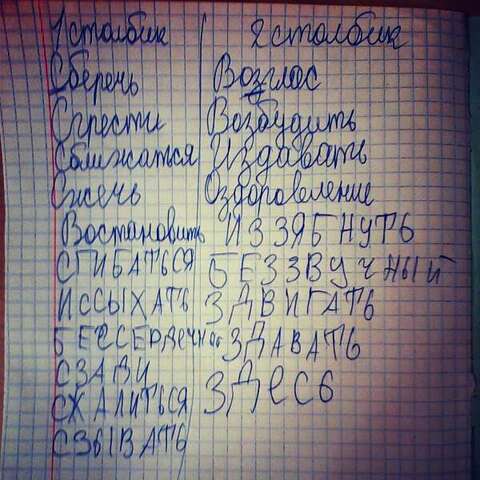 1 столбик 2 столбик
Сберечь Возглас
Сгрести Возбудить
Сближаться Издавать
Сжечь Оздоровление
Востановить ИЗЗЯБНУТЬ
СГИБАТЬСЯ БЕЗЗВУЧНЫЙ
ИССЫХАТЬ ЗДВИГАТЬ
БЕССЕРДЕЧНОЕ ЗДАВАТЬ
СЗАДИ ЗДЕСЬ
СЖАЛИТЬСЯ
СЗЫВАТЬ